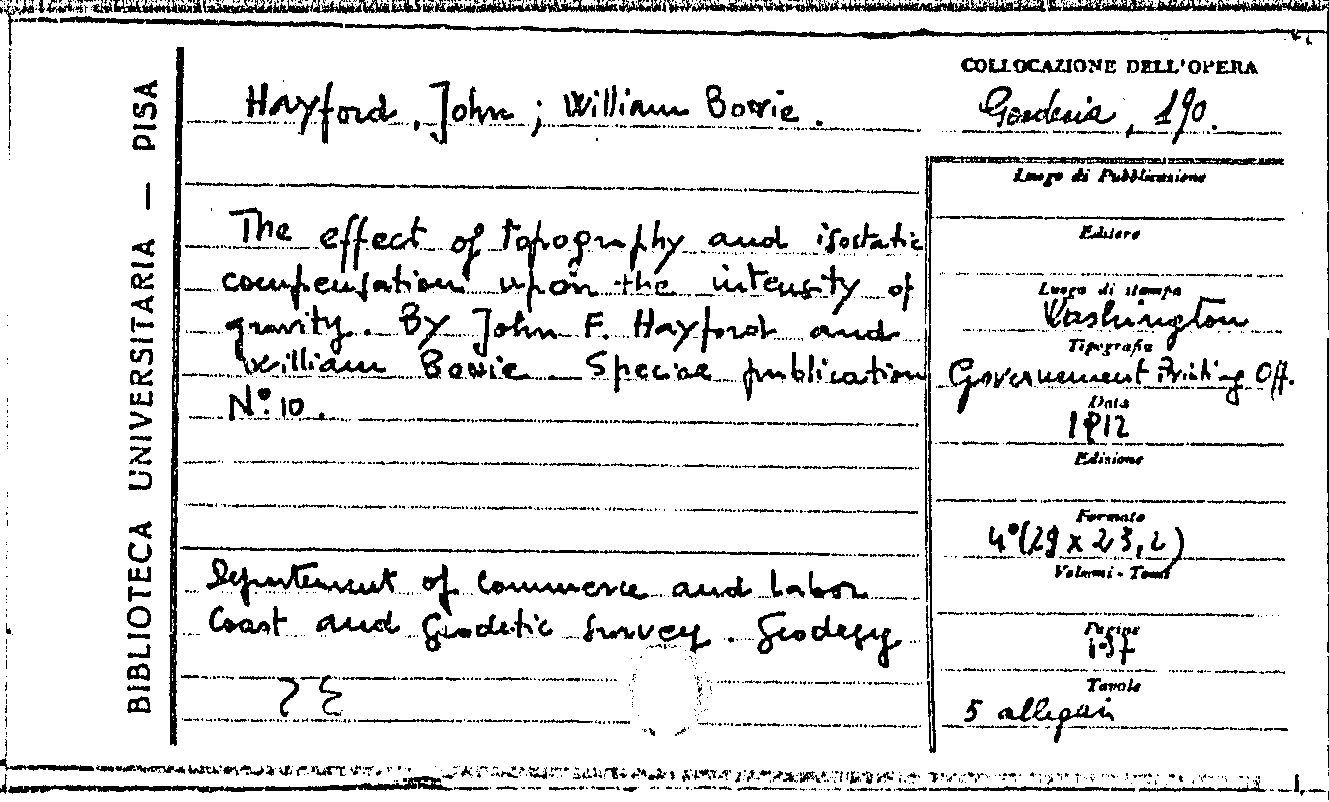 BIBLIOTECA UNIVERSITARIA — PISA
Hayford, John; William Bowie.
The effect of topography and isostatic
compensation upon the intensity of
gravity. By John F. Hayford and
William Bowie. Special publication
N.° 10.
Departement of Commerce and Labor
Coast and Geodetic Survey. Geodesy
COLLOCAZIONE DELL'OPERA
Geodesia, 190.
Luogo di Pubblicazione
Editore
Luogo di stampa
Washington
Tipografia
Governement Printing Off.
Data
1912
Edizione
Formato
4° (29 x 23,2)
Volumi - Tomi
Pagine
Tavole
5 allegati